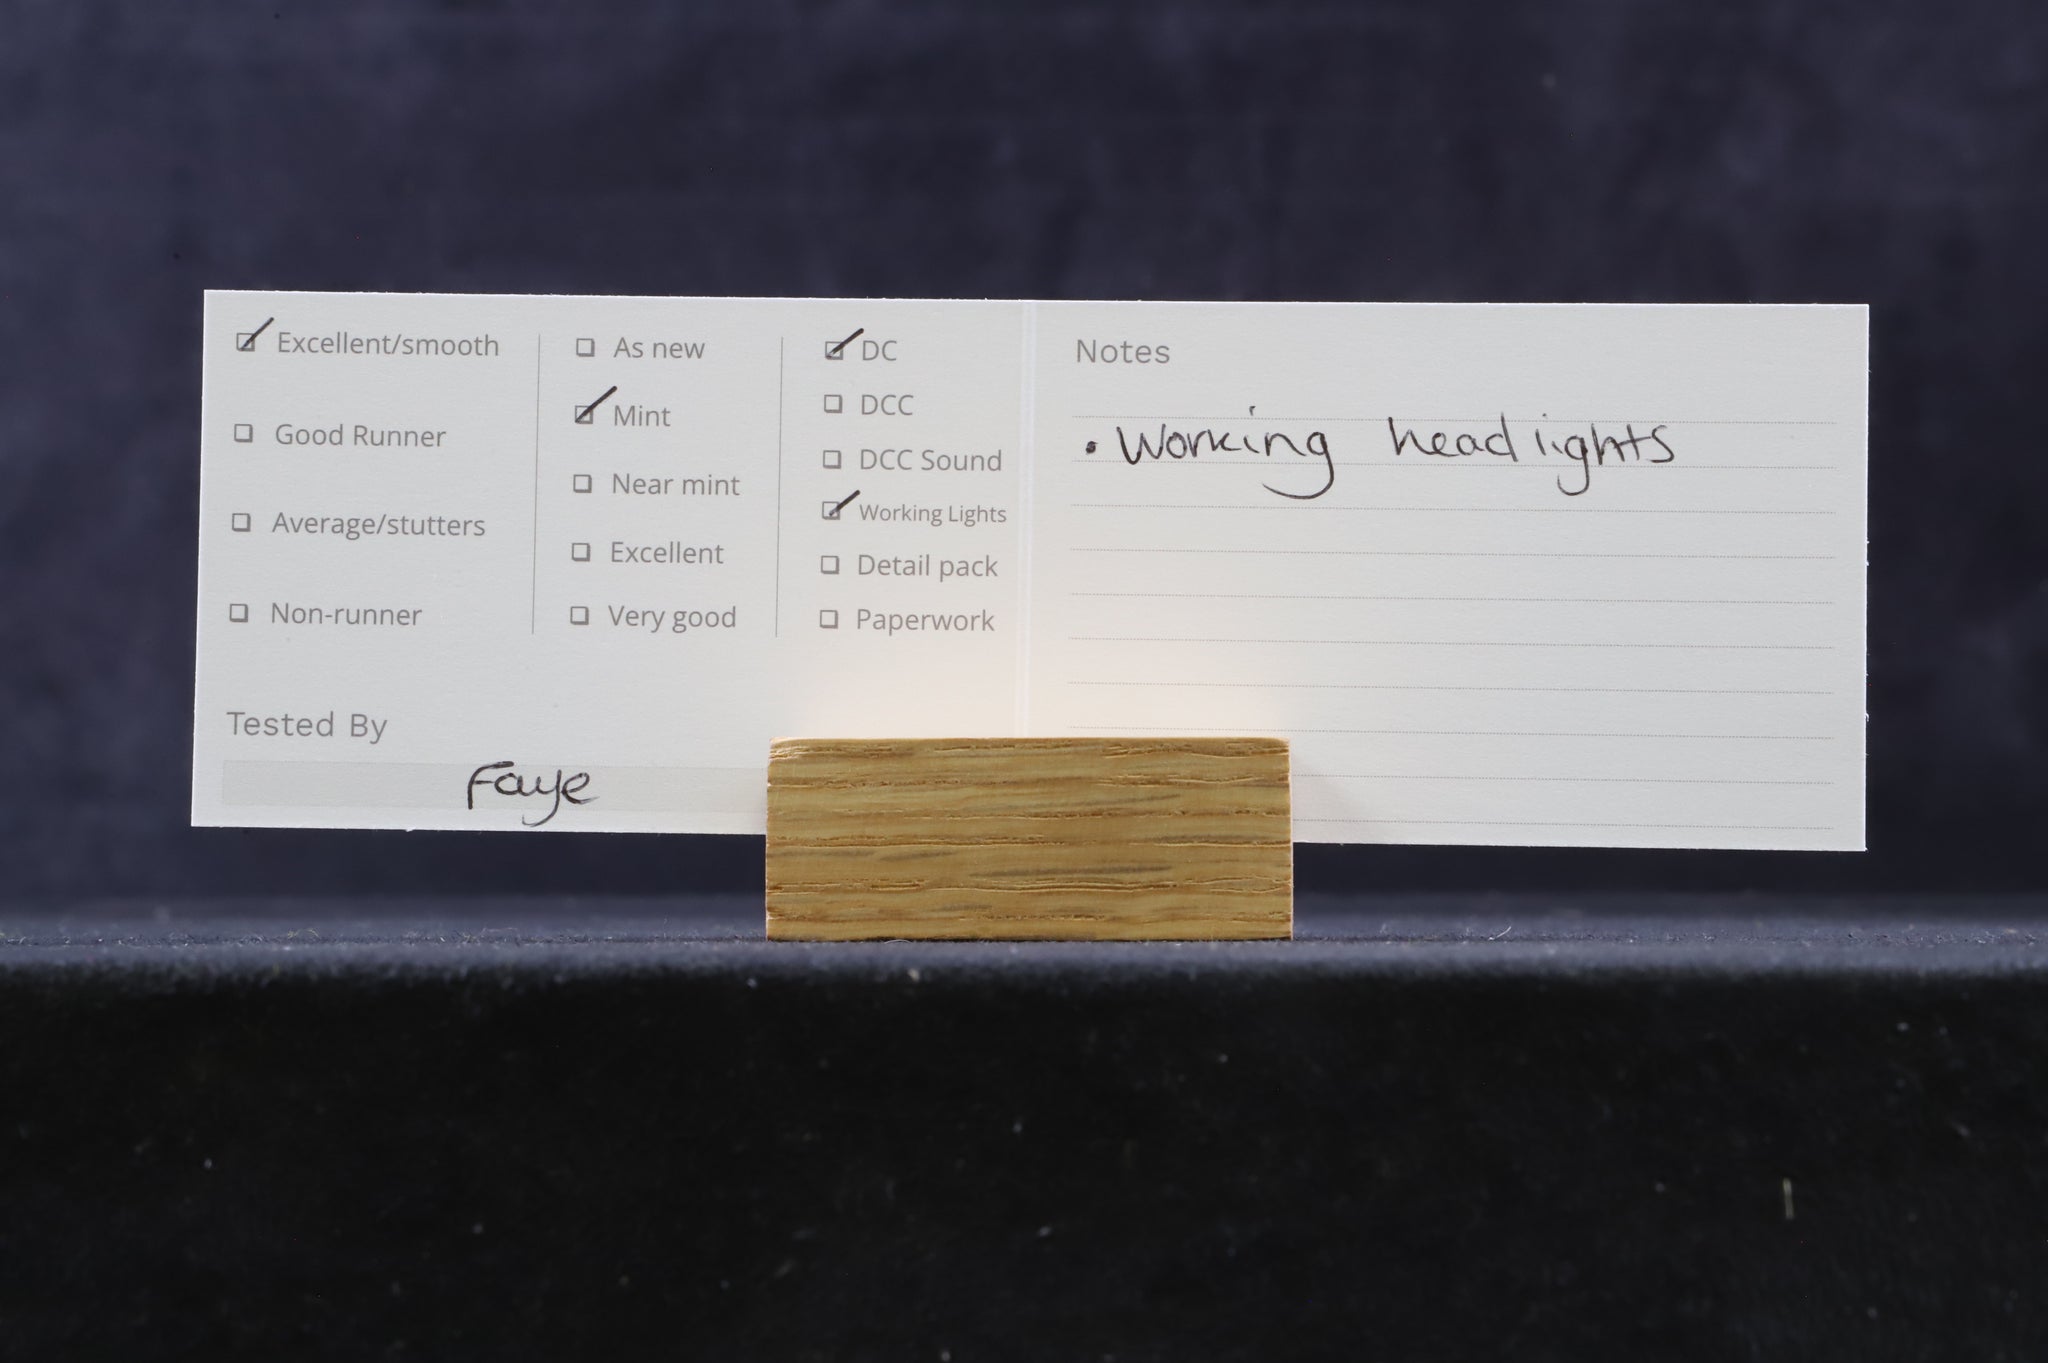 Excellent/smooth
Good Runner
Average/stutters
Non-runner
As new
Mint
Near mint
Excellent
Very good
DC
DCC
DCC Sound
Working Lights
Detail pack
Paperwork
Tested By
Faye
Notes
• Working headlights